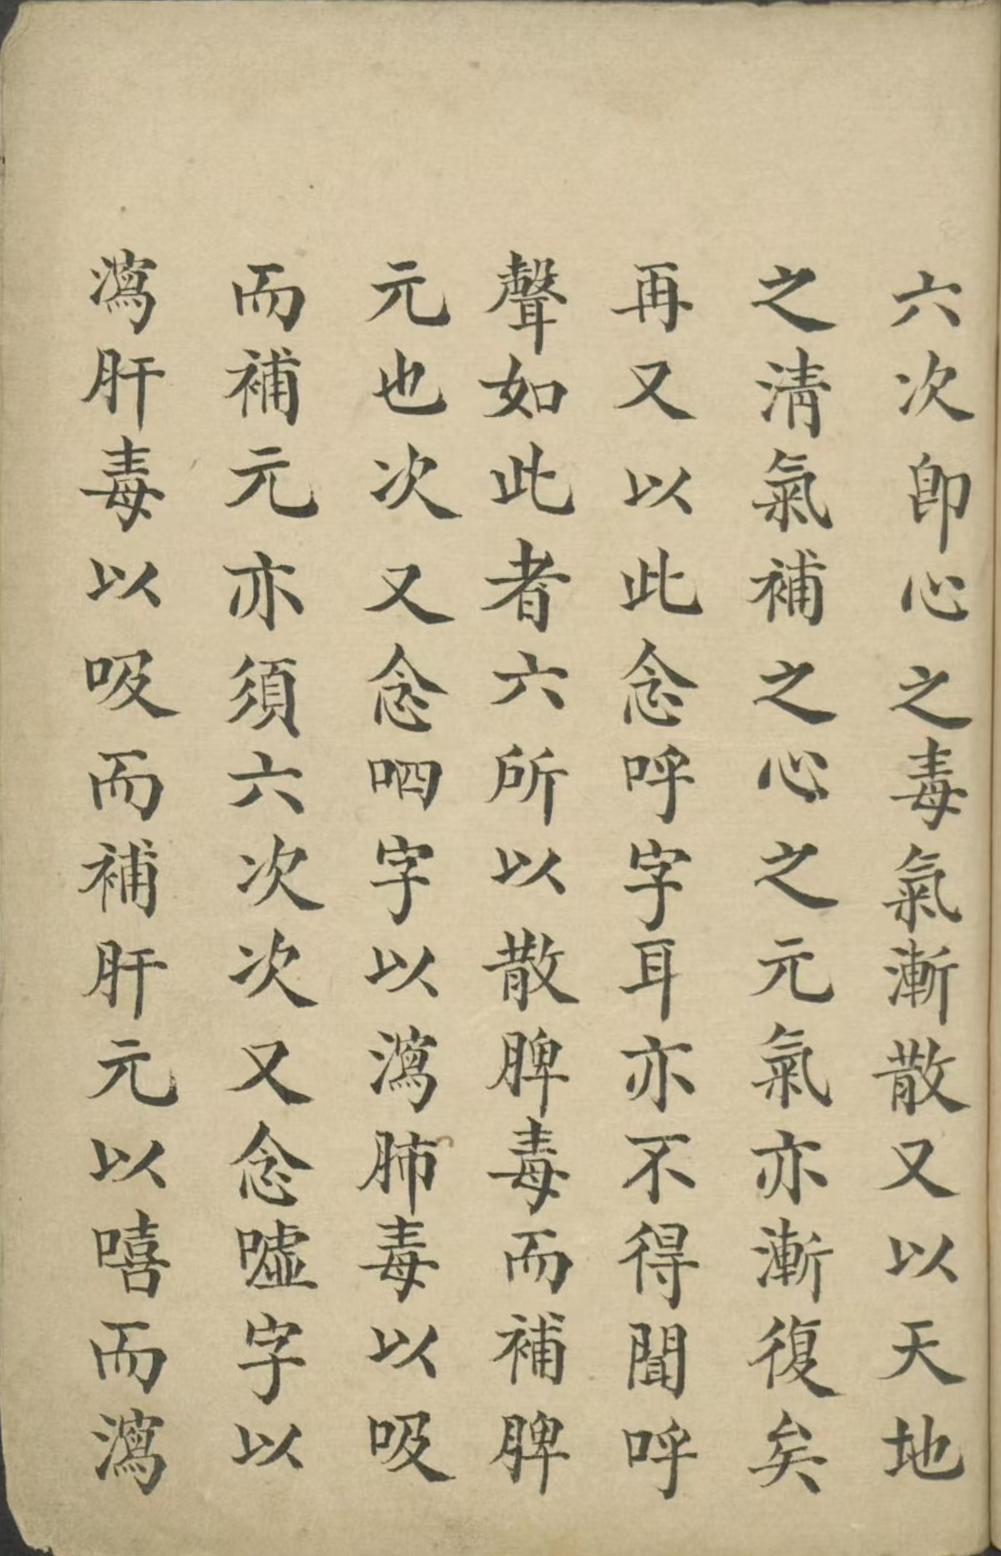 六次卽心之毒氣漸散又以天地
之清氣補之心之元氣亦漸復矣
再又以此念呼字耳亦不得聞呼
聲如此者六所以散脾毒而補脾
元也次又念呬字以瀉肺毒以吸
而補元亦須六次次又念噓字以
瀉肝毒以吸而補肝元以嘻而瀉